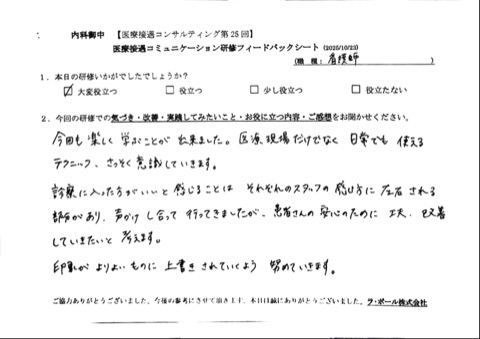 内科御中 【医療接遇コンサルティング第25回】
医療接遇コミュニケーション研修フィードバックシート (2025/10/23)
(職種: 看護師 )
1.本日の研修いかがでしたでしょうか?
☑大変役立つ □役立つ □少し役立つ □役立たない
2.今回の研修での気づき・改善・実践してみたいこと・お役に立つ内容・ご感想をお聞かせください。
今回も楽しく学ぶことが出来ました。医療現場だけでなく日常でも使える
テクニック、さっそく意識していきます。
診察に入った方がいいと感じることは それぞれのスタッフの感じ方に左右される
部分があり、声かけし合って行ってきましたが、患者さんの安心のために工夫、改善
していきたいと考えます。
印象がよりよいものに上書きされていくよう 努めていきます。
ご協力ありがとうございました。今後の参考にさせて頂きます。本日は誠にありがとうございました。ラ・ポール株式会社